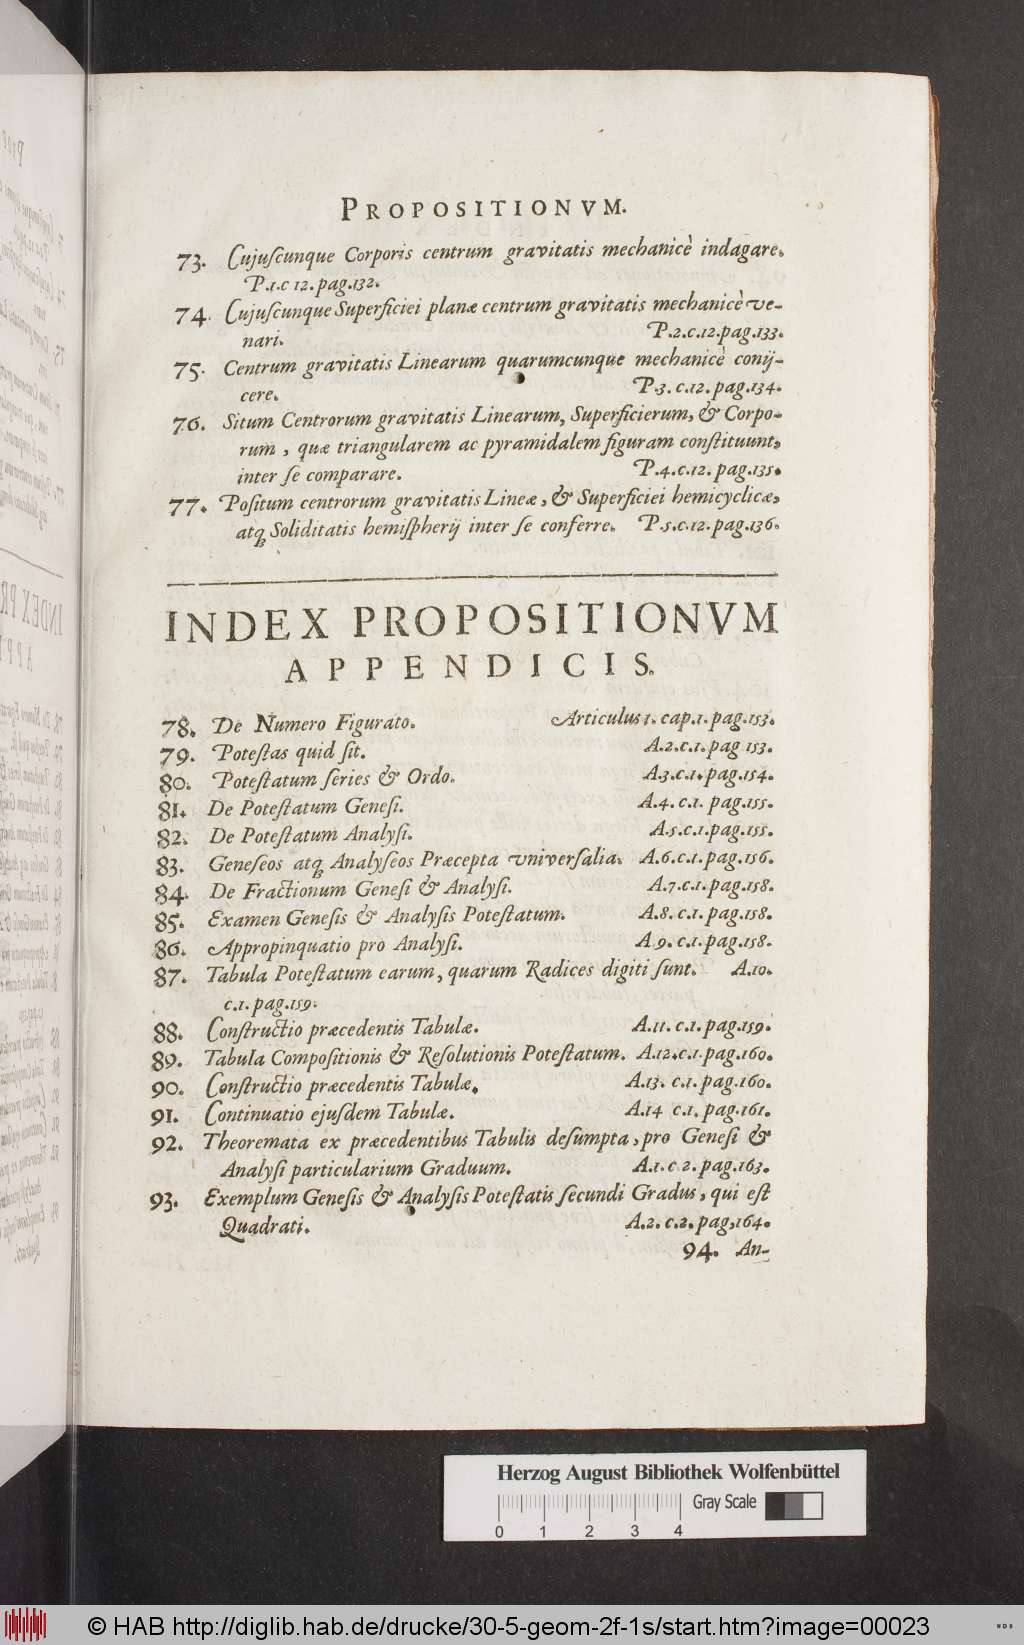 PROPOSITIONVM.
73. Cujuſcunque Corporis centrum gravitatis mechanicè indagare.
P.1.c 12.pag.132.
74. Cujuſcunque Superficiei planæ centrum gravitatis mechanicè ve-
nari. P.2.c.12.pag.133.
75. Centrum gravitatis Linearum quarumcunque mechanicè conij-
cere. P.3. c.12. pag.134.
76. Situm Centrorum gravitatis Linearum, Superficierum, & Corpo-
rum , quæ triangularem ac pyramidalem figuram conſtituunt,
inter ſe comparare. P.4.c.12. pag.135.
77. Poſitum centrorum gravitatis Lineæ, & Superficiei hemicyclicæ,
atq; Soliditatis hemiſpherij inter ſe conferre. P.5.c.12.pag.136.
INDEX PROPOSITIONVM
APPENDICIS.
78. De Numero Figurato. Articulus 1. cap.1. pag.153.
79. Poteſtas quid ſit. A.2.c.1. pag 153.
80. Poteſtatum ſeries & Ordo. A.3.c.1.pag.154.
81. De Poteſtatum Geneſi. A.4. c.1. pag.155.
82. De Poteſtatum Analyſi. A.5.c.1.pag.155.
83. Geneſeos atq; Analyſeos Præcepta univerſalia. A.6.c.1.pag.156.
84. De Fractionum Geneſi & Analyſi. A.7.c.1.pag.158.
85. Examen Geneſis & Analyſis Poteſtatum. A.8. c.1. pag.158.
86. Appropinquatio pro Analyſi. A 9. c.1.pag.158.
87. Tabula Poteſtatum earum, quarum Radices digiti ſunt. A.10.
c.1. pag.159.
88. Conſtructio præcedentis Tabulæ. A.11. c.1.pag.159.
89. Tabula Compoſitionis & Reſolutionis Poteſtatum. A.12.c.1.pag.160.
90. Conſtructio præcedentis Tabulæ. A.13. c.1. pag.160.
91. Continuatio ejuſdem Tabulæ. A.14 c.1. pag.161.
92. Theoremata ex præcedentibus Tabulis deſumpta, pro Geneſi &
Analyſi particularium Graduum. A.1. c 2. pag.163.
93. Exemplum Geneſis & Analyſis Poteſtatis ſecundi Gradus, qui eſt
Quadrati. A.2. c.2. pag,164.
94. An-
Herzog August Bibliothek Wolfenbüttel
Gray Scale
0 1 2 3 4
© HAB http://diglib.hab.de/drucke/30-5-geom-2f-1s/start.htm?image=00023